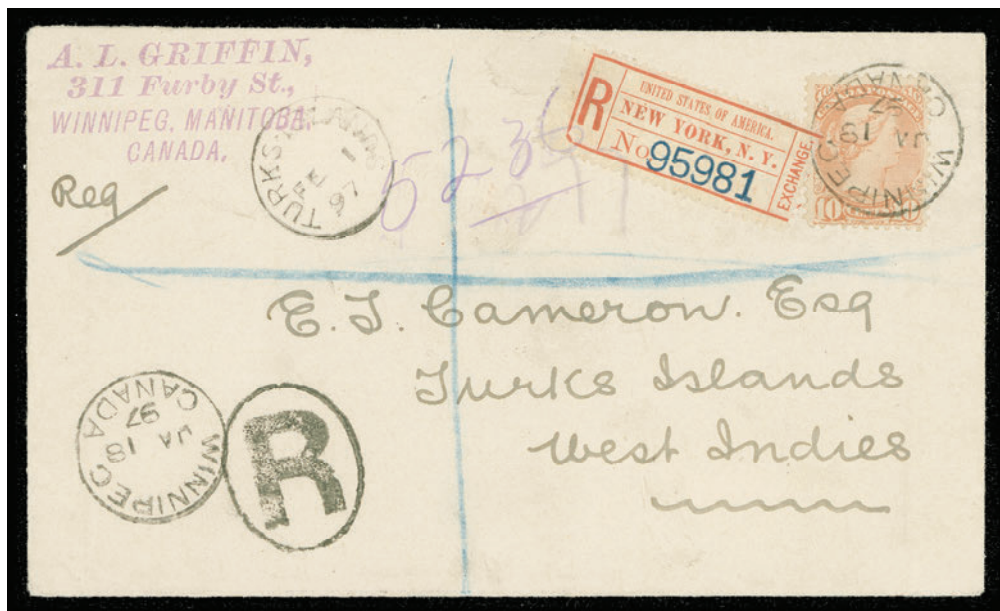 A. L. GRIFFIN,
311 Furby St.,
WINNIPEG, MANITOBA,
CANADA,
Reg
TURKS ISLANDS
FE 1
97
R
UNITED STATES OF AMERICA.
NEW YORK, N. Y.
No 95981
EXCHANGE
WINNIPEG
JA 18
97
CANADA
10 10
E. J. Cameron. Esq
Turks Islands
West Indies
WINNIPEG
JA 18
97
CANADA
R